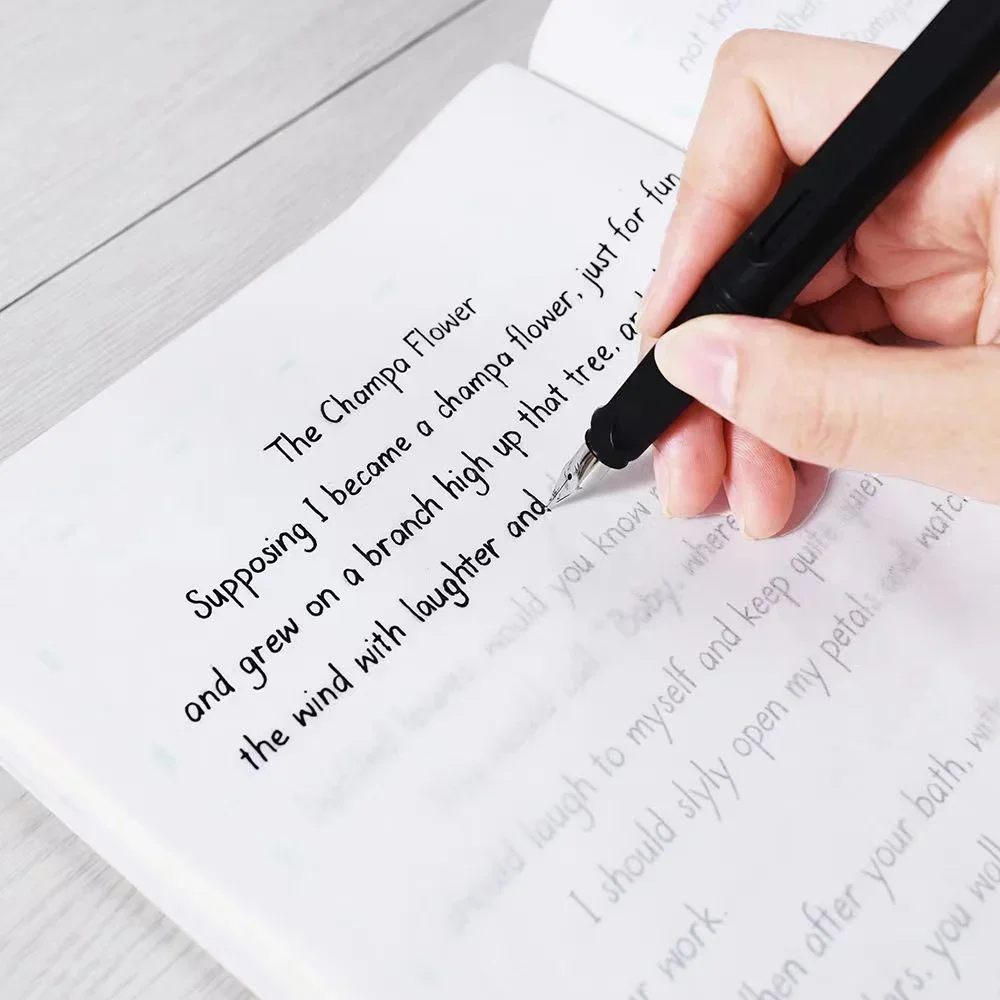 not know
The Champa Flower
Supposing I became a champa flower, just for fun
and grew on a branch high up that tree,
the wind with laughter and
would you know
Baby, where
should laugh to myself and keep quite quiet
I should slyly open my petals and watch
your work.
after your bath, with
you walk